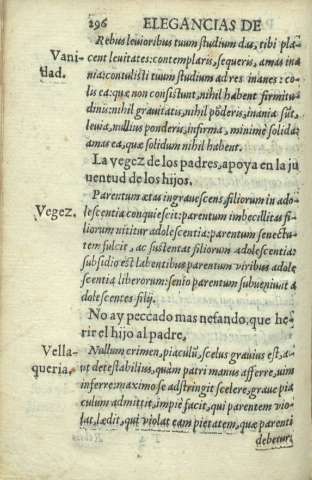 296 ELEGANCIAS DE
Rebus leuioribus tuum studium das, tibi pla-
Vani-
dad.
cent leuitates: contemplaris, sequeris, amas ina
nia: contulisti tuum studium ad res inanes: co-
lis ea: quæ non consistunt, nihil habent firmitu
dinis: nihil grauitatis, nihil põderis, inania sũt,
leuia, nullius ponderis, infirma, minimè solida:
amas ea, quæ solidum nihil habent.
La vegez de los padres, apoya en la ju
uentud de los hijos.
Vegez.
Parentum ætas ingrauescens, filiorum in ado-
lescentia conquiescit: parentum imbecillitas fi-
liorum nititur adolescentia: parentum senectu-
tem fulcit, ac sustentat filiorum adolescentia:
subsidio est labentibus parentum viribus adole
scentia liberorum: senio parentum subueniunt a
dolescentes filij.
No ay peccado mas nefando, que he-
rir el hijo al padre.
Vella-
queria.
Nullum crimen, piaculũ, scelus grauius est, a-
ut detestabilius, quàm patri manus afferre, uim
inferre: maximo se adstringit scelere, graue pia
culum admittit, impiè facit, qui parentem vio-
lat, lædit, qui violat eam pietatem, quæ parenti
debetur.